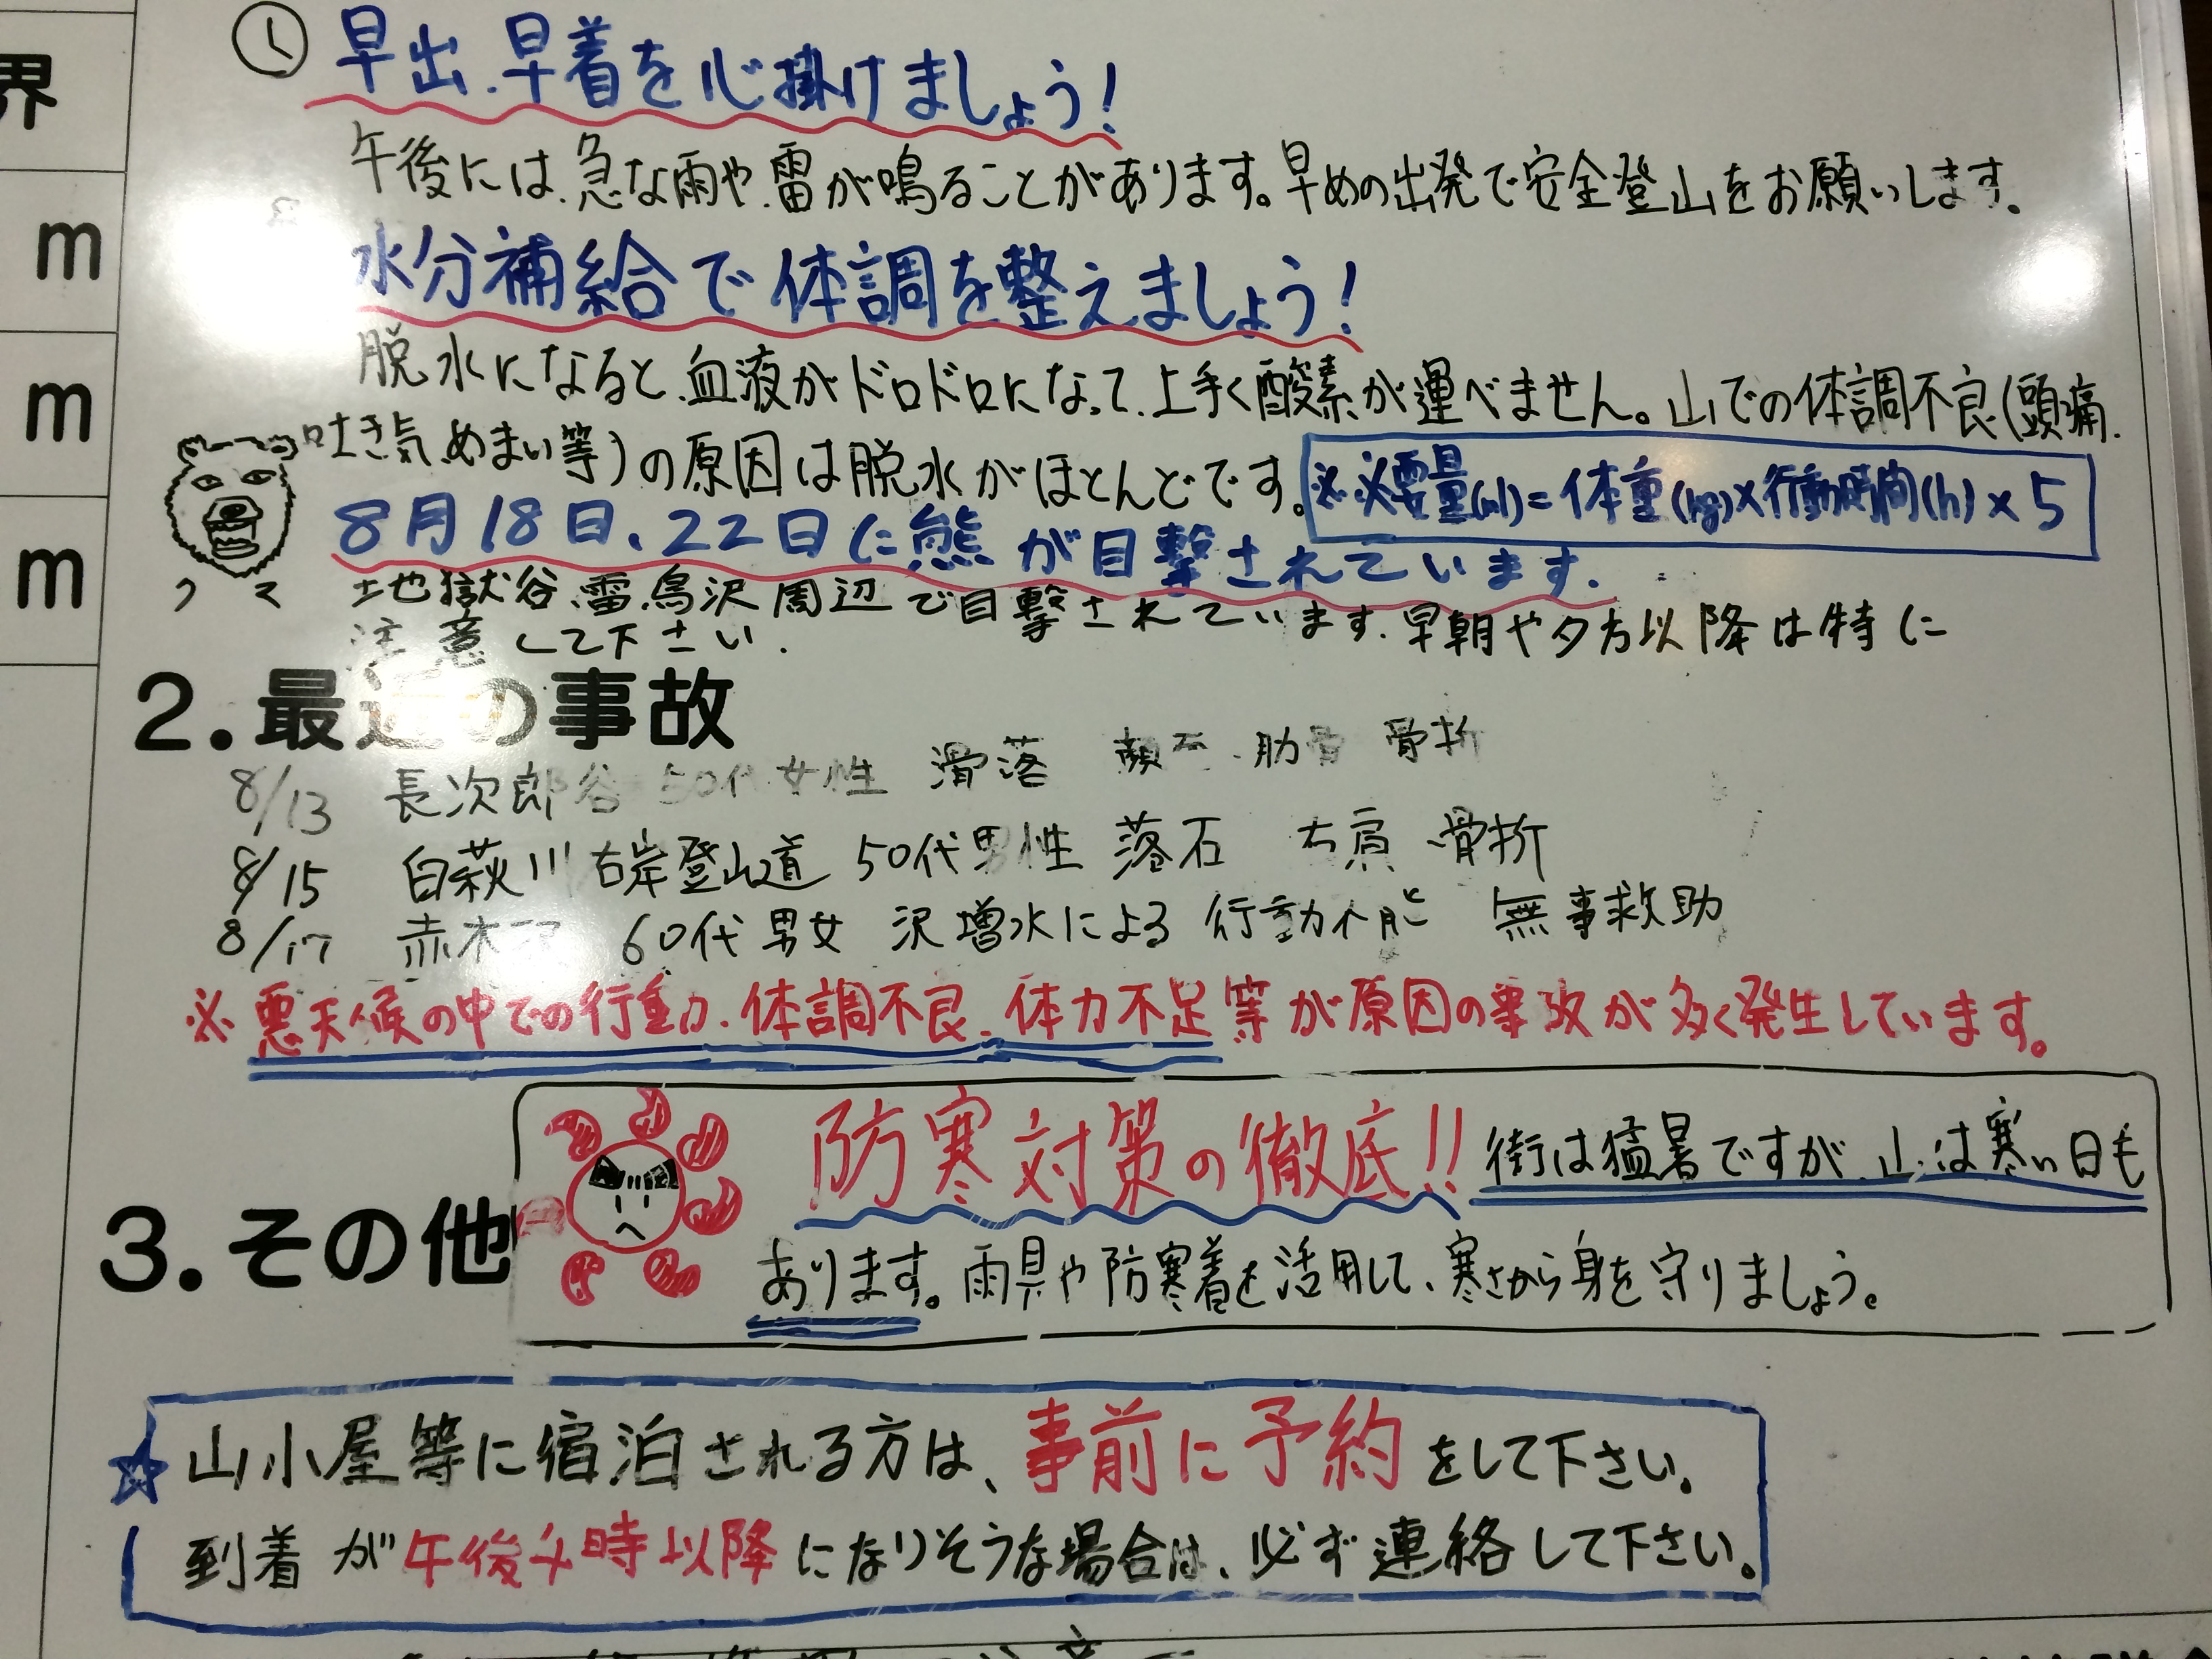 界
m
m
m
早出、早着を心掛けましょう!
午後には、急な雨や、雷が鳴ることがあります。早めの出発で安全登山をお願いします。
水分補給で体調を整えましょう!
脱水になると、血液がドロドロになって、上手く酸素が運べません。山での体調不良(頭痛、
吐き気、めまい等)の原因は脱水がほとんどです。
※必要量(ml)=体重(kg)×行動時間(h)×5
8月18日、22日に熊が目撃されています。
クマ
地獄谷、雷鳥沢周辺で目撃されています。早朝や夕方以降は特に
注意して下さい。
2.最近の事故
8/13 長次郎谷 50代女性 滑落 肋骨 骨折
8/15 白萩川右岸登山道 50代男性 落石 右肩 骨折
8/17 赤木沢 60代男女 沢増水による 行動不能 無事救助
※悪天候の中での行動、体調不良、体力不足等が原因の事故が多く発生しています。
3.その他
防寒対策の徹底!! 街は猛暑ですが、山は寒い日も
あります。雨具や防寒着を活用して、寒さから身を守りましょう。
☆山小屋等に宿泊される方は、事前に予約をして下さい。
到着が午後4時以降になりそうな場合は、必ず連絡して下さい。